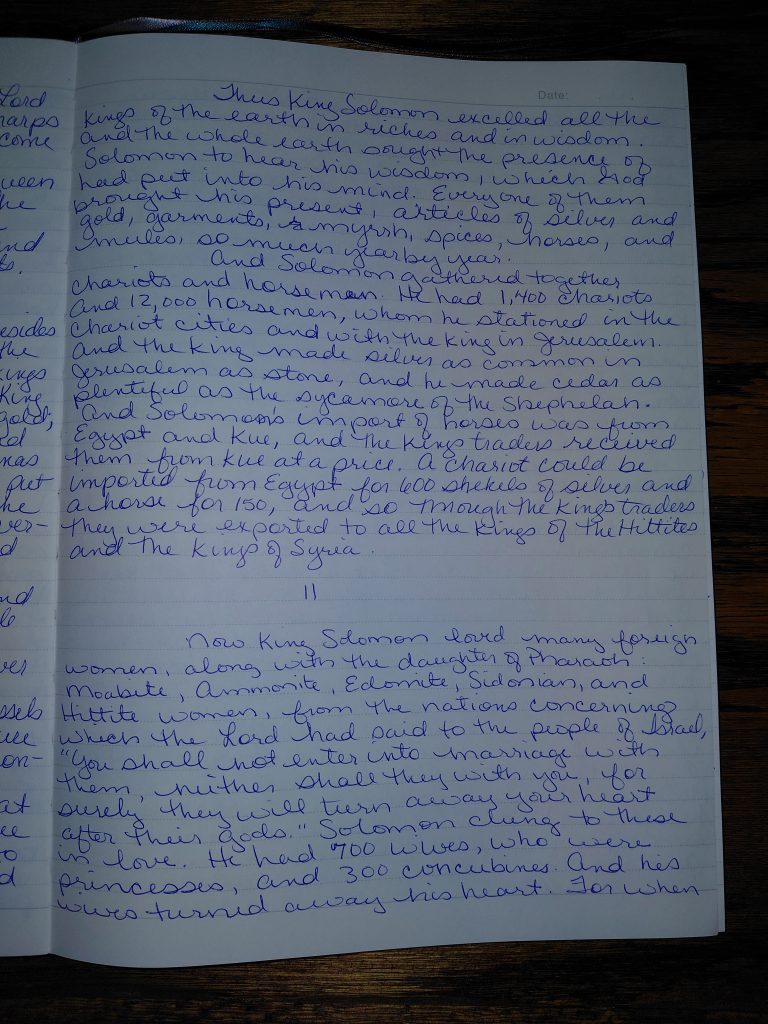 Lord
harps
come
ueen
he
and
ts.
esides
the
kings
King
gold;
ed
was
put
he
ver-
d
nd
le
ver
ssels
on-
at
ee
to
d
Date:
Thus King Solomon excelled all the
kings of the earth in riches and in wisdom.
and the whole earth sought the presence of
Solomon to hear his wisdom, which God
had put into his mind. Everyone of them
brought his present, articles of silver and
gold, garments, myrrh, spices, horses, and
mules, so much year by year.
And Solomon gathered together
chariots and horseman. He had 1,400 chariots
and 12,000 horsemen, whom he stationed in the
chariot cities and with the king in Jerusalem.
And the king made silver as common in
Jerusalem as stone, and he made cedar as
plentiful as the sycamore of the Shephelah.
And Solomon's import of horses was from
Egypt and Kue, and the kings traders received
them from Kue at a price. A chariot could be
imported from Egypt for 600 shekels of silver and
a horse for 150, and so through the kings traders
they were exported to all the kings of the Hittites
and the kings of Syria.
11
Now King Solomon loved many foreign
women, along with the daughter of Pharaoh:
Moabite, Ammonite, Edomite, Sidonian, and
Hittite women, from the nations concerning
which the Lord had said to the people of Israel,
"You shall not enter into marriage with
them, neither shall they with you, for
surely they will turn away your heart
after their gods." Solomon clung to these
in love. He had 700 wives, who were
princesses, and 300 concubines. And his
wives turned away his heart. For when